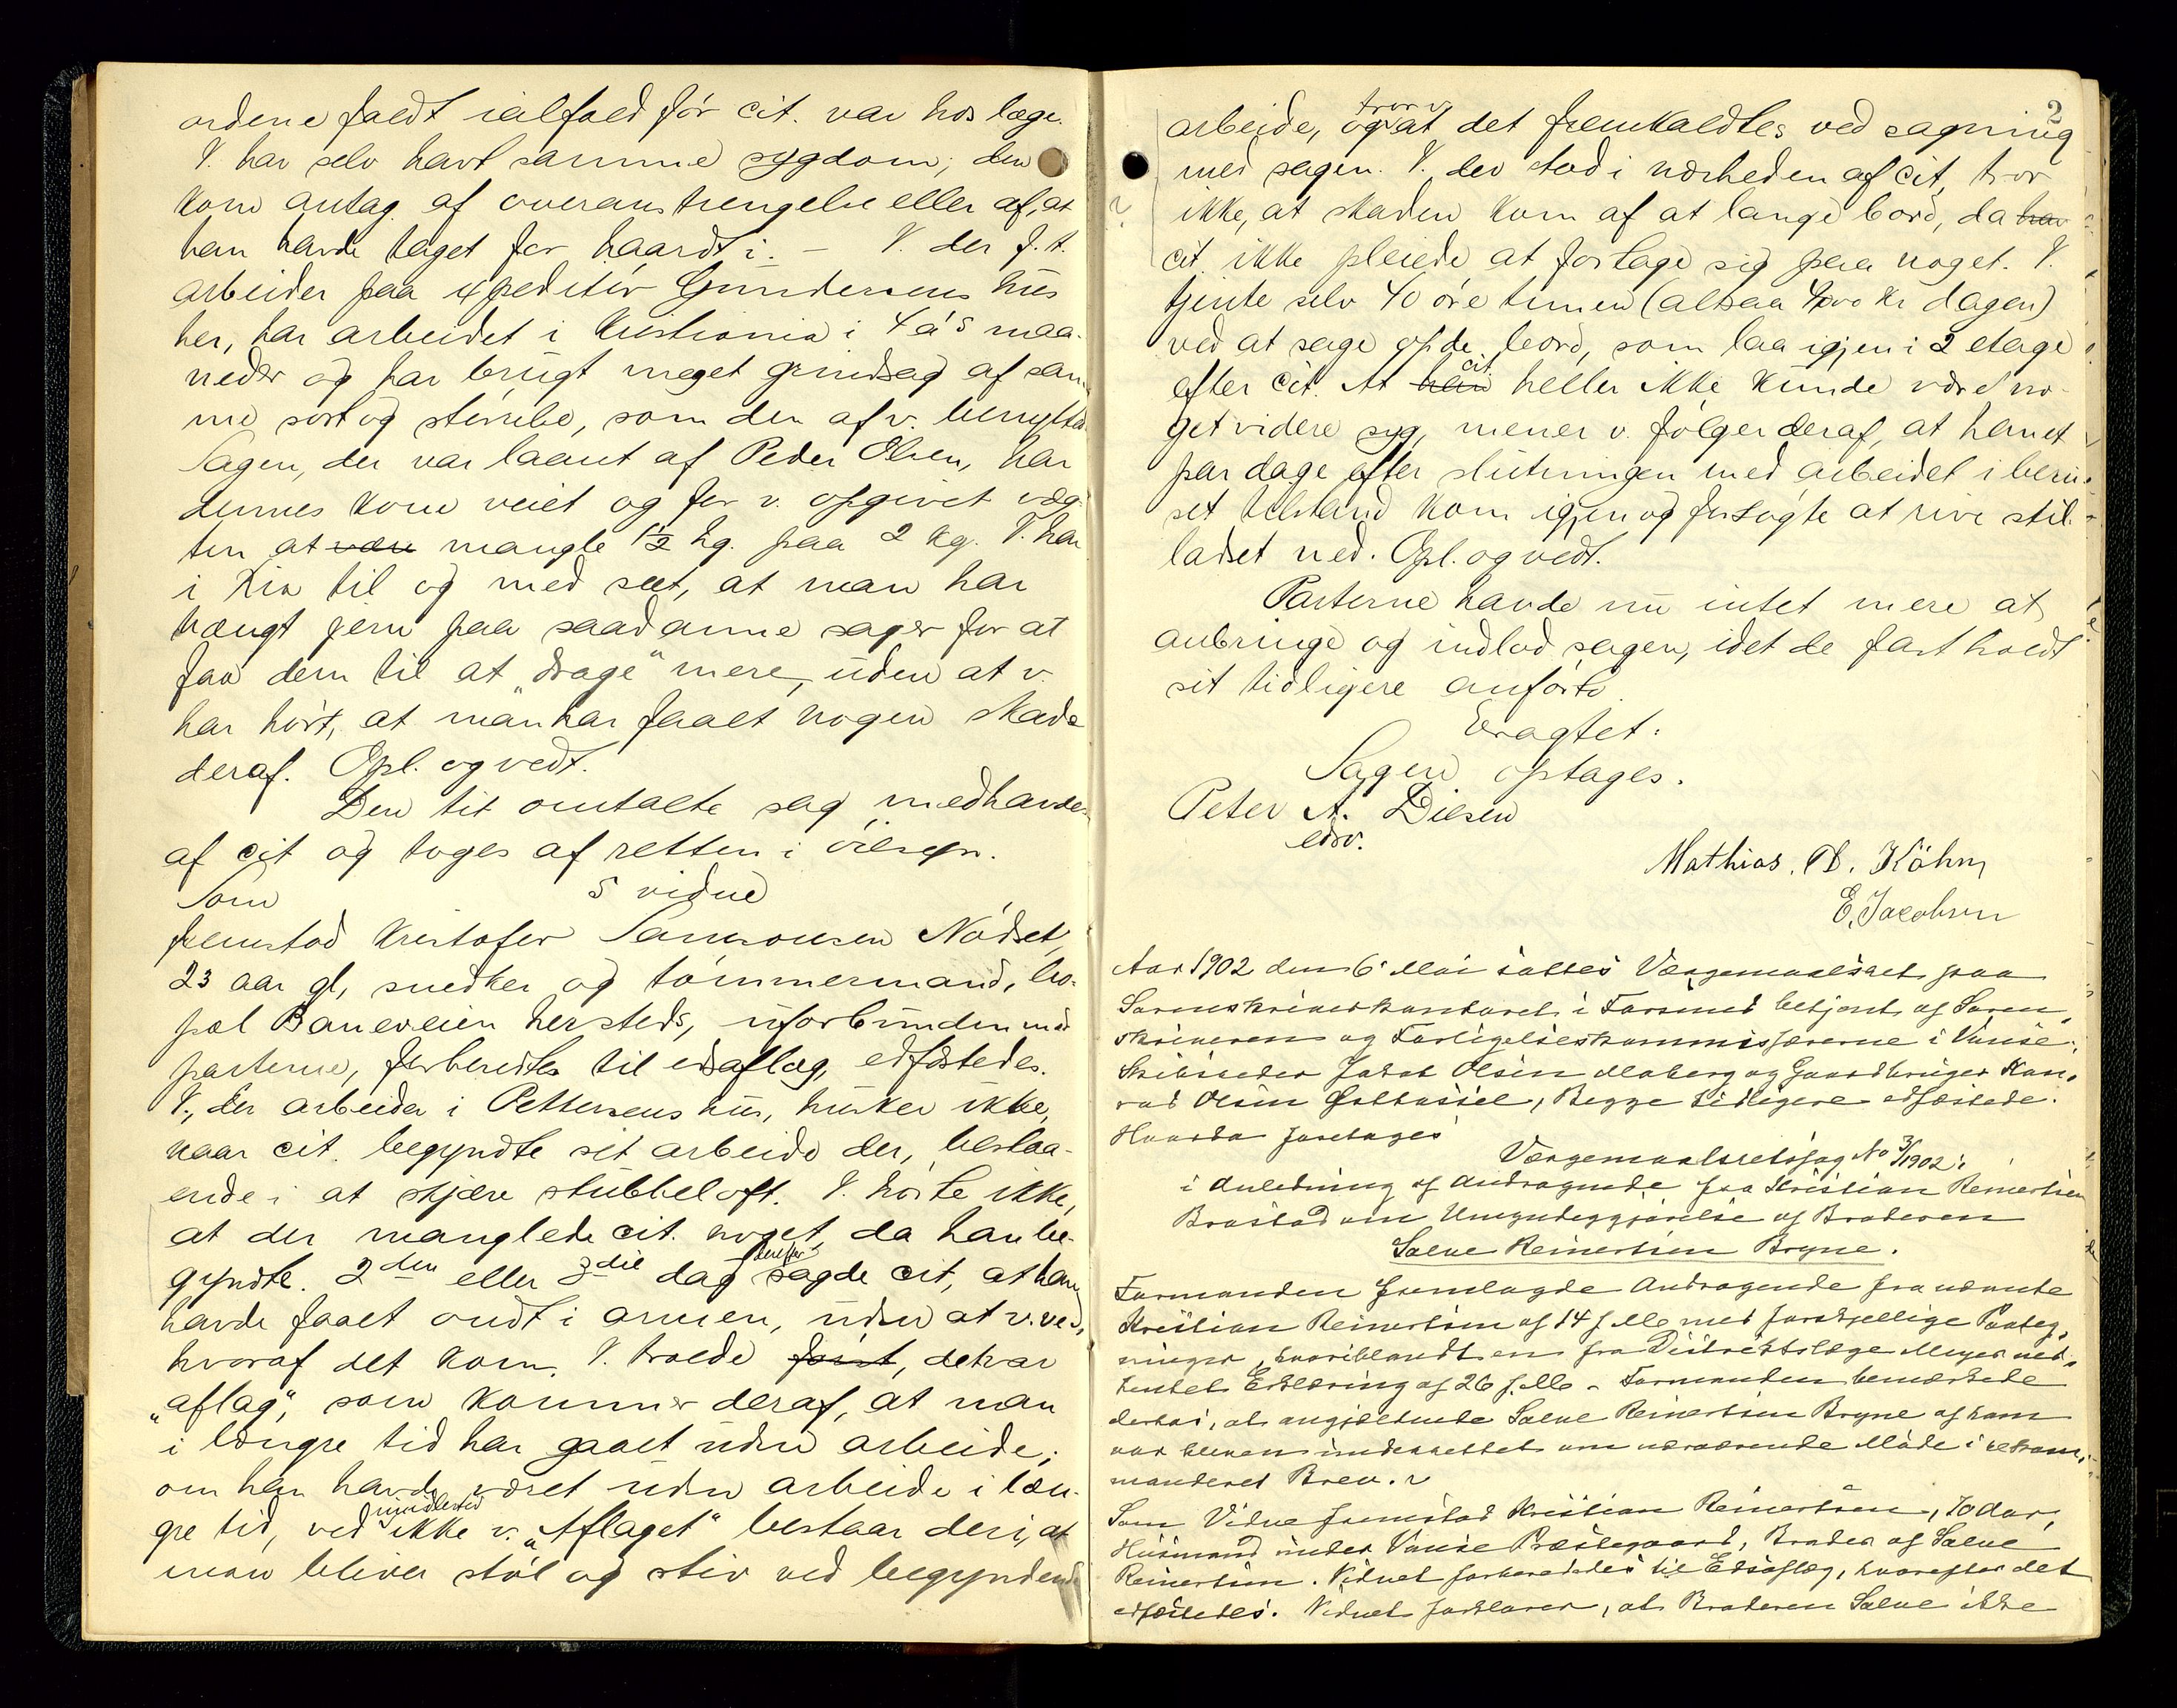 ordene faldt ialfald før cit. var hos læge.
V. har selv havt samme sygdom; den
kom antag. af overanstrengelse eller af, at
han havde taget for haardt i. — V. der f. t.
arbeider paa expeditør Gundersens hus
her, har arbeidet i Kristiania i 4 à 5 maa-
neder og har brugt meget grindsag af sam-
me sort og størrelse, som den af v. benyttede
Sagen, der var laant af Peder Olsen, har
dennes kone veiet og for v. opgivet væg-
ten at være mangle 1½ hg. paa 2 kg. V. har
i Kia til og med seet, at man har
hængt jern paa saadanne sager for at
faa dem til at "drage" mere, uden at v.
har hørt, at man har faaet nogen skade
deraf. Opl. og vedt.
Den tit omtalte sag medhavdes
af cit og toges af retten i øiesyn.
Som 5 vidne
fremstod Kristofer Samsonsen Nødset,
23 aar gl, snedker og tømmermand, bo-
pæl Baneveien hersteds, uforbunden med
parterne, forberedtes til edsaflæg, edfæstedes.
V., der arbeider i Pettersens hus, husker ikke,
naar cit. begyndte sit arbeide der, bestaa-
ende i at skjære stubbeloft. V. hørte ikke,
at der manglede cit. noget, da han be-
gyndte. 2den eller 3die dag derefter sagde cit, at han
havde faaet ondt i armen, uden at v. ved,
hvoraf det kom. V. troede først, det var
"aflag", som kommer deraf, at man
i længre tid har gaaet uden arbeide;
om han havde været uden arbeide i læn-
gre tid, ved imidlertid ikke v. "Aflaget" bestaar deri, at
man bliver støl og stiv ved begyndende
2
arbeide, og tror v. at det fremkaldtes ved sagning
med sagen. V. der stod i nærheden af cit, tror
ikke, at skaden kom af at lange bord, da han
cit. ikke pleiede at fortage sig paa noget. V.
tjente selv 40 øre timen (altsaa 4,00 kr dagen)
ved at sage op de bord, som laa igjen i 2 etage
efter cit. At han cit heller ikke kunde være no-
get videre syg, mener v. følger deraf, at han et
par dage efter slutningen med arbeidet i beru-
set tilstand kom igjen og forsøgte at rive stil-
ladset ned. Opl. og vedt.
Parterne havde nu intet mere at
anbringe og indlod sagen, idet de fastholdt
sit tidligere anførte.
Eragtet:
Sagen optages.
Peter A. Diesen
edsv.
Mathias. B. Köhn
E. Jacobsen
Aar 1902 den 6 Mai sattes Værgemaalsret paa
Sorenskriverkontoret i Farsund betjent af Soren-
skriveren og Forligelseskommissærerne i Vanse:
Skibsreder Jakob Olsen Maberg og Gaardbruger Kon-
rad Olsen, Begge tidligere edfæstede.
Hvorda foretages
Værgemaalsretssag No 3/1902:
i Anledning af Andragende fra Kristian Reinertsen
Brastad om Umyndiggjørelse af Broderen
Salve Reinertsen Bryne.
Formanden fremlagde Andragende fra nævnte
Kristian Reinertsen af 14 f. M. med forskjellige Paateg-
ninger, hvoriblandt en fra Distriktslæge Meyer ind-
hentet Erklæring af 26 f. M. - Formanden bemærkede
derhos, at angjældende Salve Reinertsen Bryne af ham
var bleven underrettet om nærværende Møde i rekom-
manderet Brev.
Som Vidne fremstod Kristian Reinertsen, 70 Aar,
Husmand under Vanse Præstegaard, Broder af Salve
Reinertsen. Vidnet forberededes til Edsaflæg, hvorefter det
edfæstedes. Vidnet forklarer, at Broderen Salve ikke